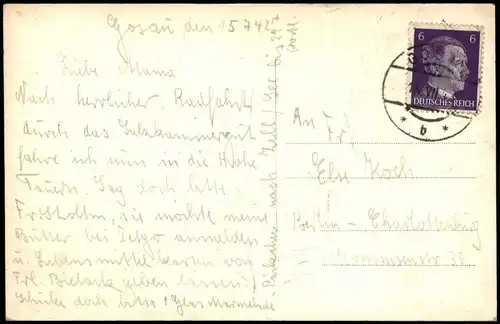 Gosau den 15 7 42
Liebe Mama
Nach herrlicher Radfahrt
durch das Salzkammergut
fahre ich nun in die Hohe
Tauern. Sag doch bitte
Frl. sie möchte meine
Butter bei anmelden
u. Lebensmittelkarten von
Frl. geben lassen.
Schicke doch bitte 1 Glas Marmelade
nach Zell/See bis
An Fr.
Else Koch
Berlin-Charlottenburg
Mommsenstr 36
6 6
DEUTSCHES REICH
* b *